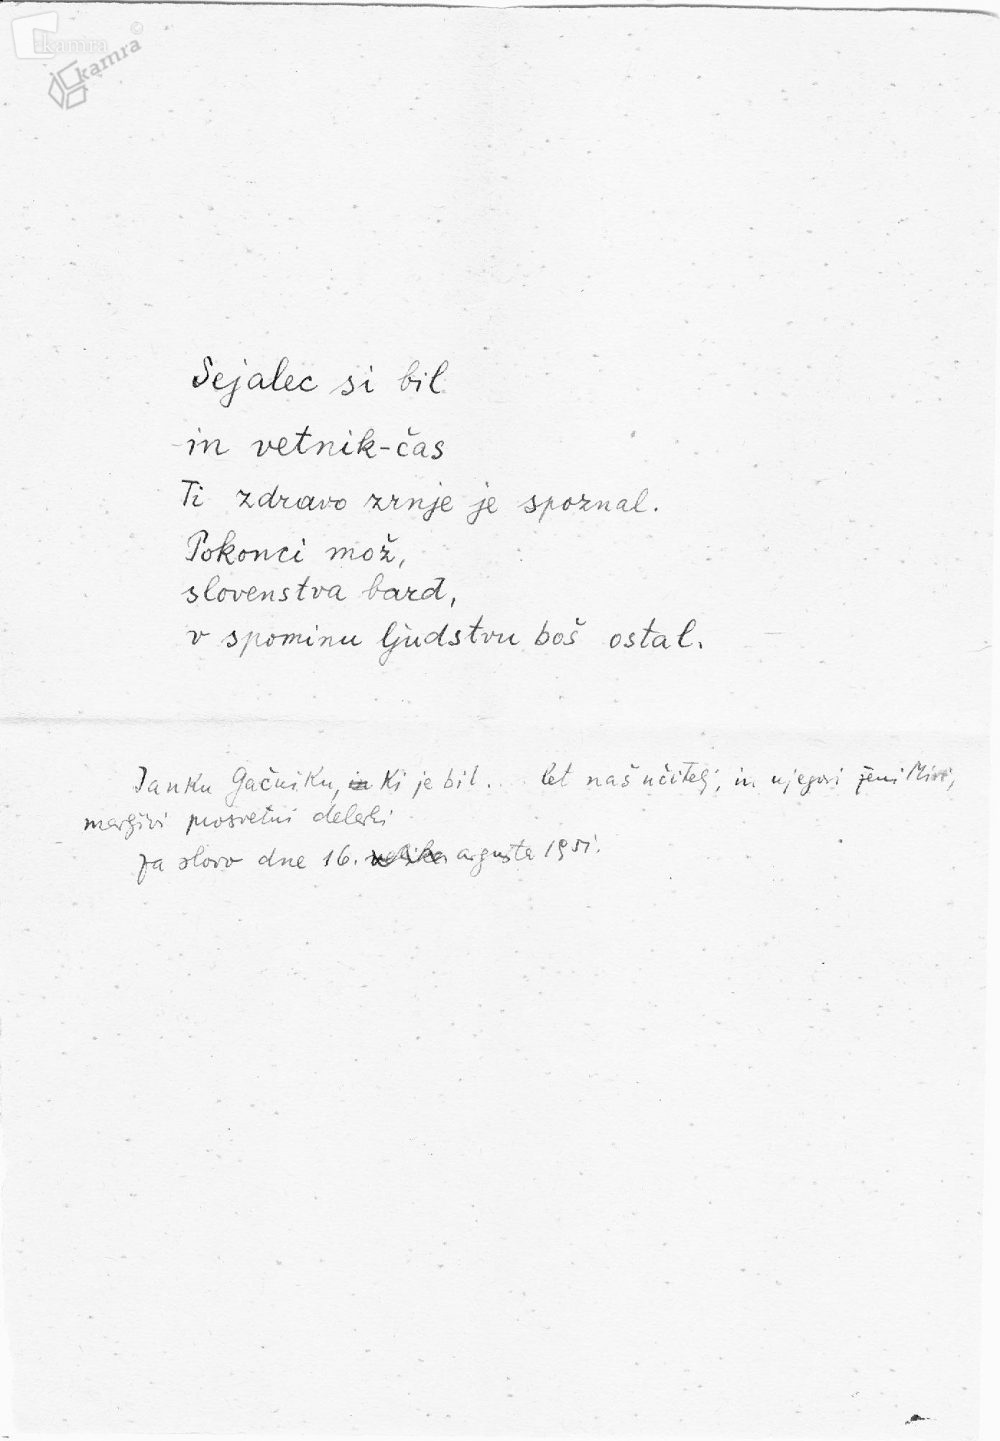 kamra
©
kamra
Sejalec si bil
in vetnik-čas
Ti zdravo zrnje je spoznal.
Pokonci mož,
slovenstva bard,
v spominu ljudstvu boš ostal.
Janku Gačniku, in ki je bil... let naš učitelj, in njegovi ženi Miri,
marljivi prosvetni delavki
za slovo dne 16. avgusta 1951.